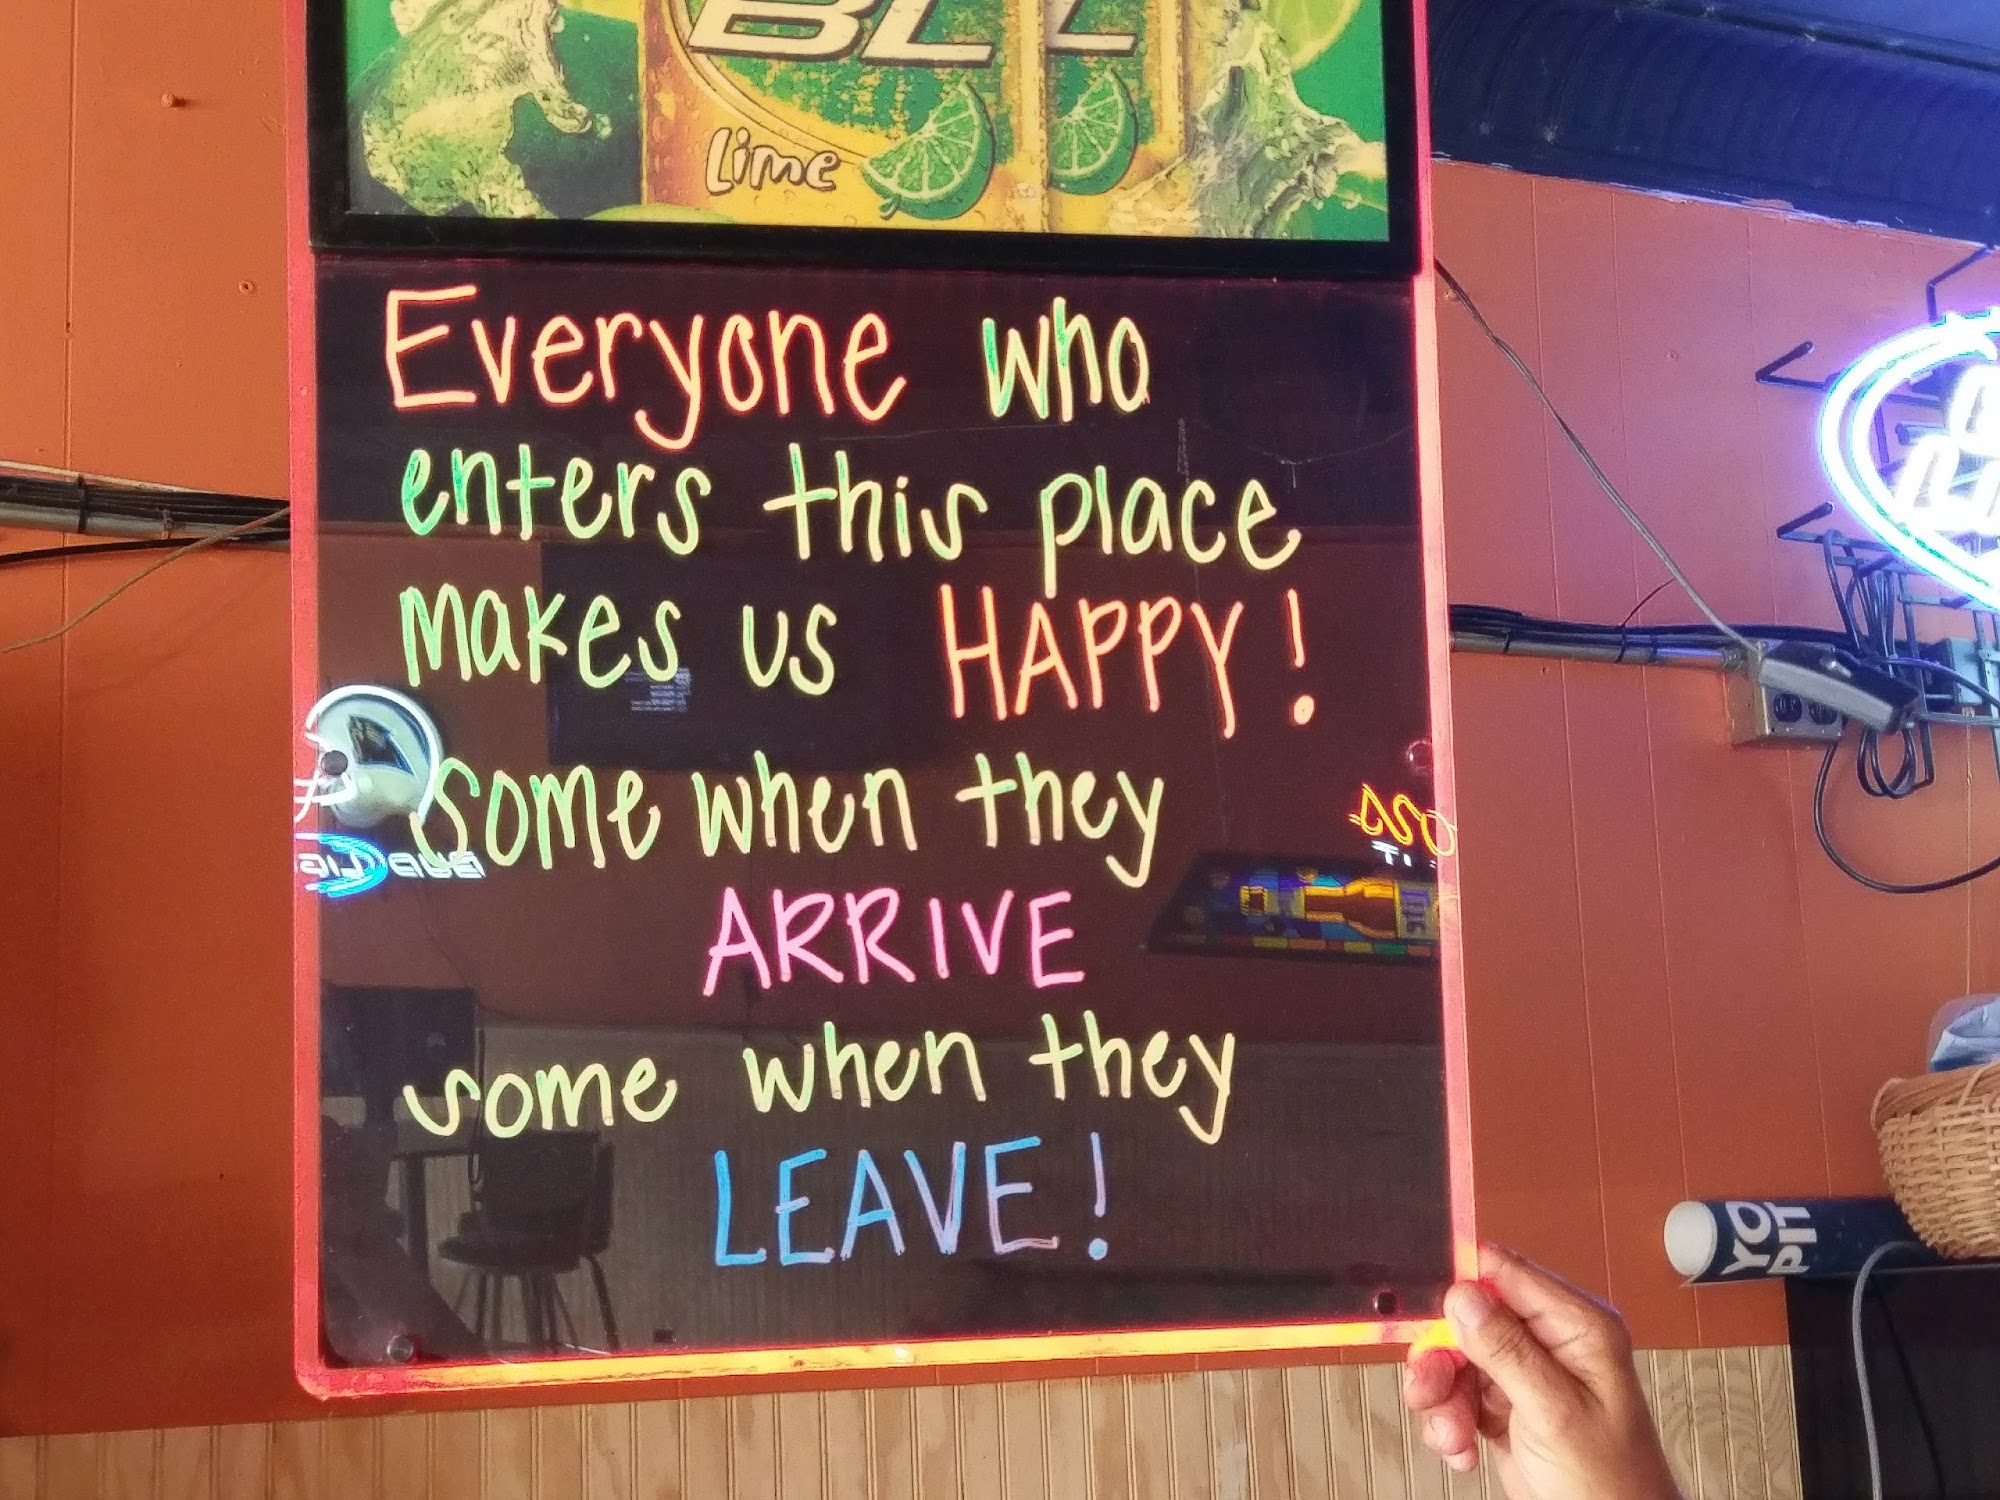 BL L
Lime
Everyone who
enters this place
makes us HAPPY!
some when they
ARRIVE
some when they
LEAVE!
BUD LIG
YO
PIT